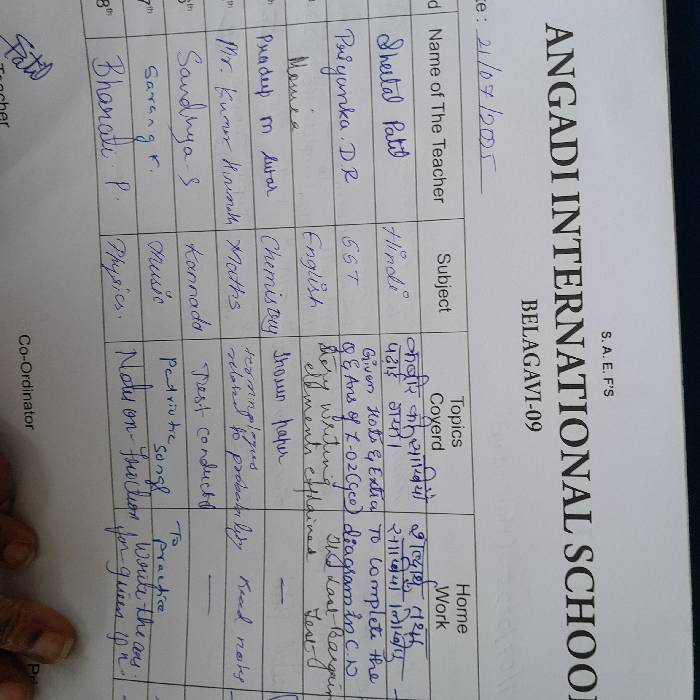 S. A. E. F'S
ANGADI INTERNATIONAL SCHOO
BELAGAVI-09
te : 21/07/2025
d Name of The Teacher Subject Topics Coverd Home Work
Sheetal Patil Hindi
Priyanka. D R SST Given Note & Extra Q & Ans of L-02(Geo) To complete the diagram in C.W
English Story writing elements explained The Last Bargain
Pradeep M Sutar Chemistry Shown paper —
Mr. Kumar Hiremath Maths terminologies related to probability Read notes
Sandhya-S Kannada Test conducted —
7th Sarang K. Music Patriotic songs To practice
8th Bharati P. Physics. Note on friction Write the ans. for given qn.
Teacher
Co-Ordinator
Pr